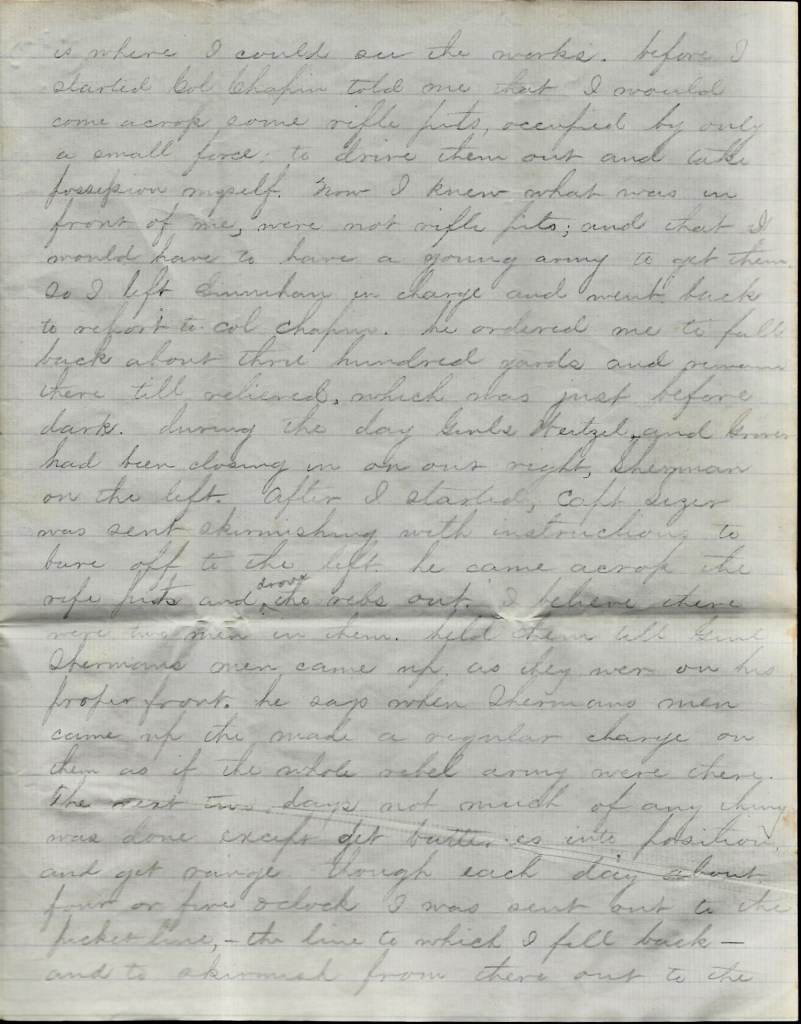 is where I could see the works. before I
started Col Chapin told me that I would
come across some rifle pits, occupied by only
a small force; to drive them out and take
possession myself. Now I knew what was in
front of me, were not rifle pits; and that I
would have to have a young army to get them.
So I left in charge and went back
to report to Col Chapin. he ordered me to fall
back about three hundred yards and remain
there till relieved, which was just before
dark. during the day Genls Weitzel, and Grover
had been closing in on our right, Sherman
on the left. After I started, Capt Sizer
was sent skirmishing with instructions to
bare off to the left he came across the
rife pits and drove the rebs out. I believe there
were two men in them. held them till Genl
Shermans men came up, as they were on his
proper front. he says when Shermans men
came up the made a regular charge on
them as if the whole rebel army were there.
The next two days not much of any thing
was done except get batteries into position,
and get range though each day about
four or five oclock I was sent out to the
picket line, – the line to which I fell back –
and to skirmish from there out to the